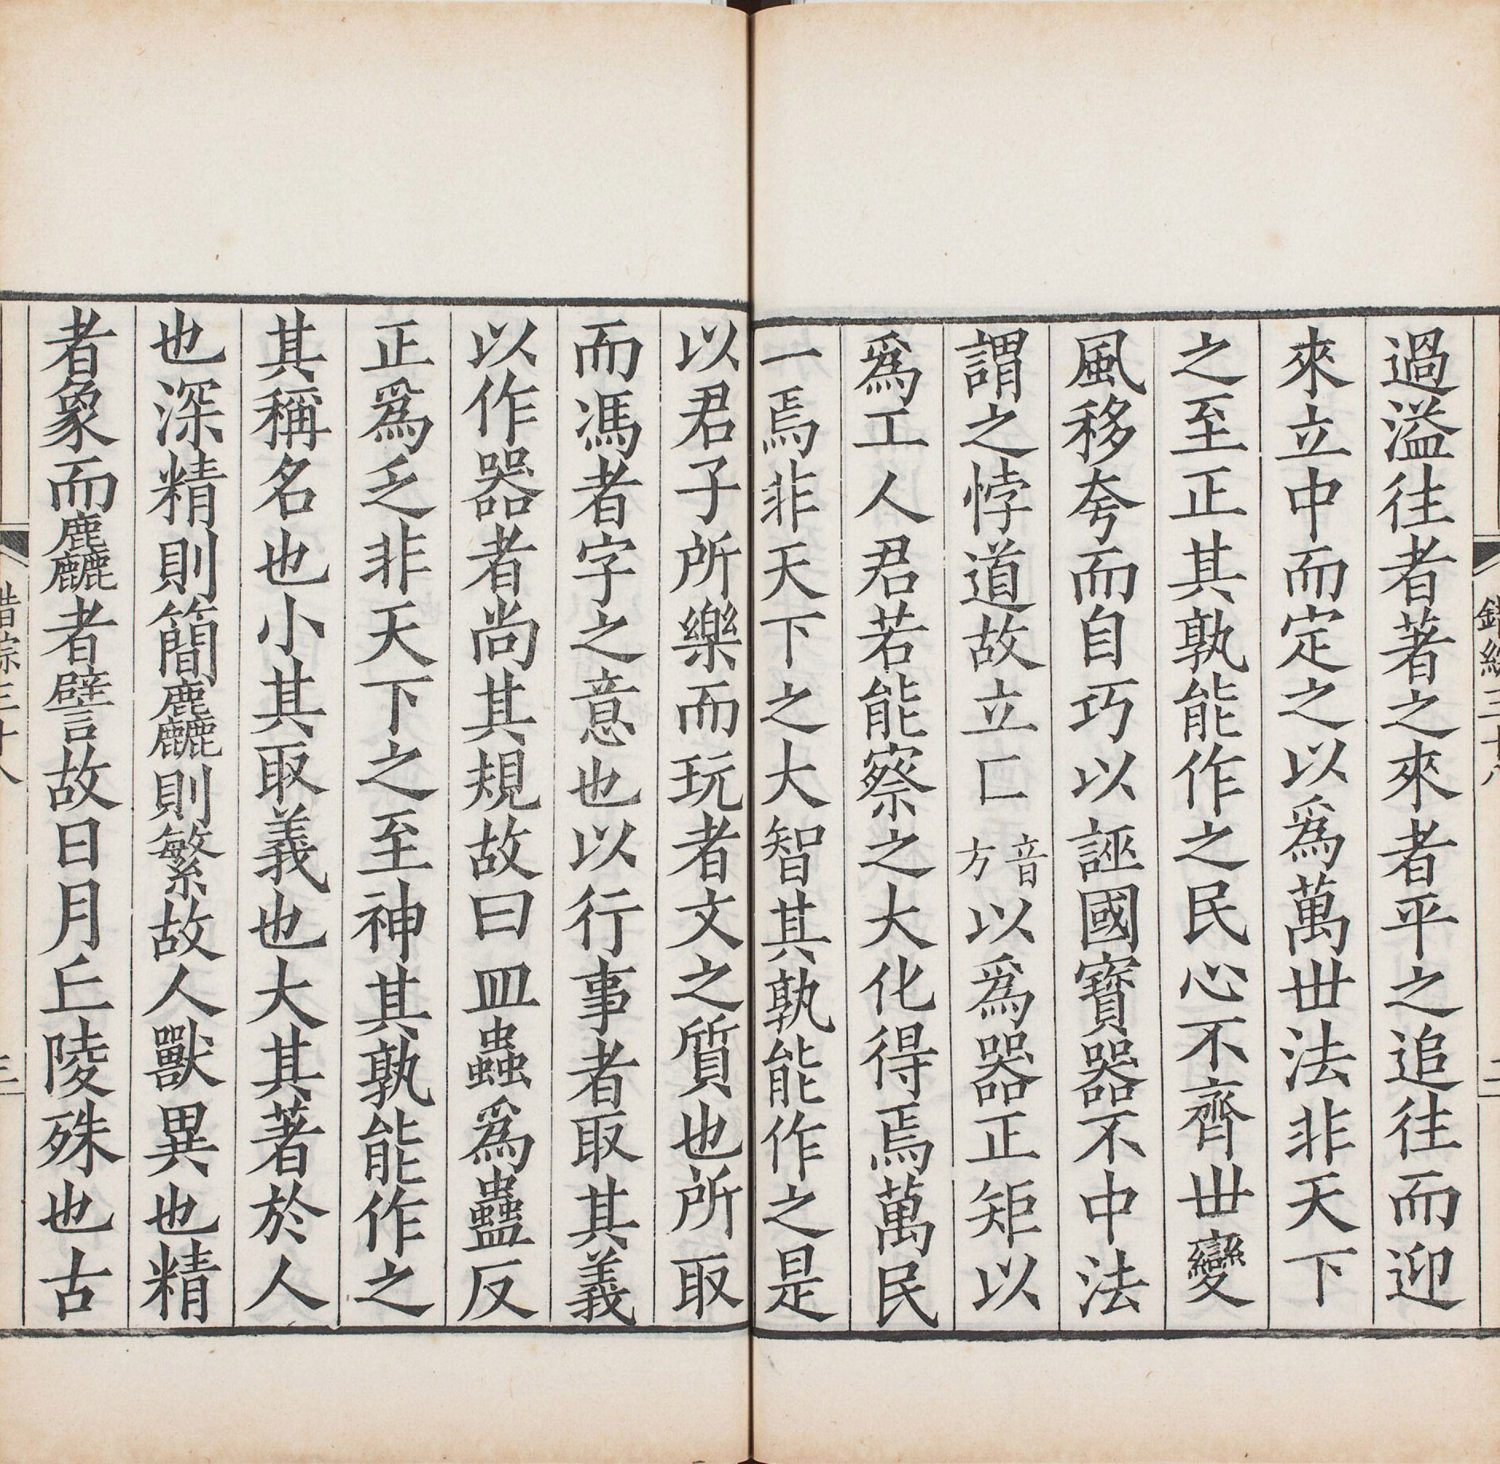 過溢往者著之來者平之追往而迎
來立中而定之以爲萬丗法非天下
之至正其孰能作之民心不齊丗變
風移夸而自巧以誣國寶器不中法
謂之悖道故立匚音方以爲器正矩以
爲工人君若能察之大化得焉萬民
一焉非天下之大智其孰能作之是
以君子所樂而玩者文之質也所取
而馮者字之意也以行事者取其義
以作器者尚其規故曰皿蟲爲蠱反
正爲乏非天下之至神其孰能作之
其稱名也小其取義也大其著於人
也深精則簡麤則繁故人獸異也精
者象而麤者譬故日月丘陵殊也古
錯綜三十八
三